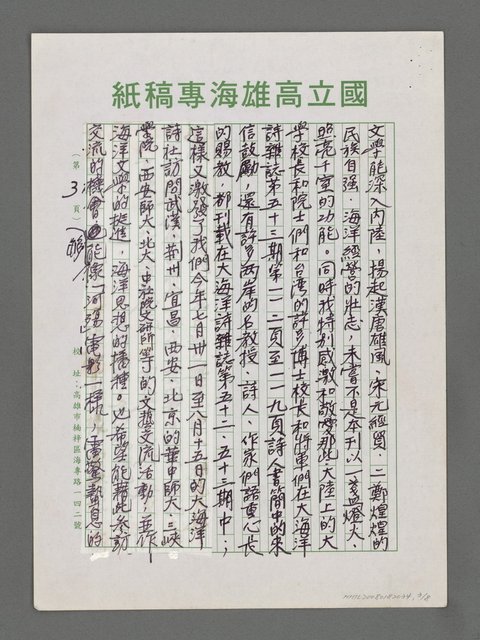 國立高雄海專稿紙
文學能深入內陸，揚起漢唐雄風、宋元經貿、二鄭煌煌的
民族自強、海洋經營的壯志，未嘗不是本刊以一盞燈火、
照亮千室的功能。同時我特別感激和敬愛那些大陸上的大
學校長和院士們和台灣的許多博士校長和將軍們在大海洋
詩雜誌第五十三期第一一二頁至一一九頁詩人書簡中的來
信鼓勵，還有許多兩岸的名教授、詩人、作家們語重心長
的賜教，都刊載在大海洋詩雜誌第五十二、五十三期中；
這樣又激發了我們今年七月卅一日至八月十五日的大海洋
詩社訪問武漢、荊州、宜昌、西安、北京的華中師大、三峽
學院、西安師大、北大、中社院文研所等的文藝交流活動，並作
海洋文學的推進，海洋思想的播種。也希望能藉此參訪
交流的機會也能像「河殤」電影一樣，震聾
的
（第 3 頁）
校 址：高雄市楠梓區海專路一四二號
NMTL20080182034, 3/8